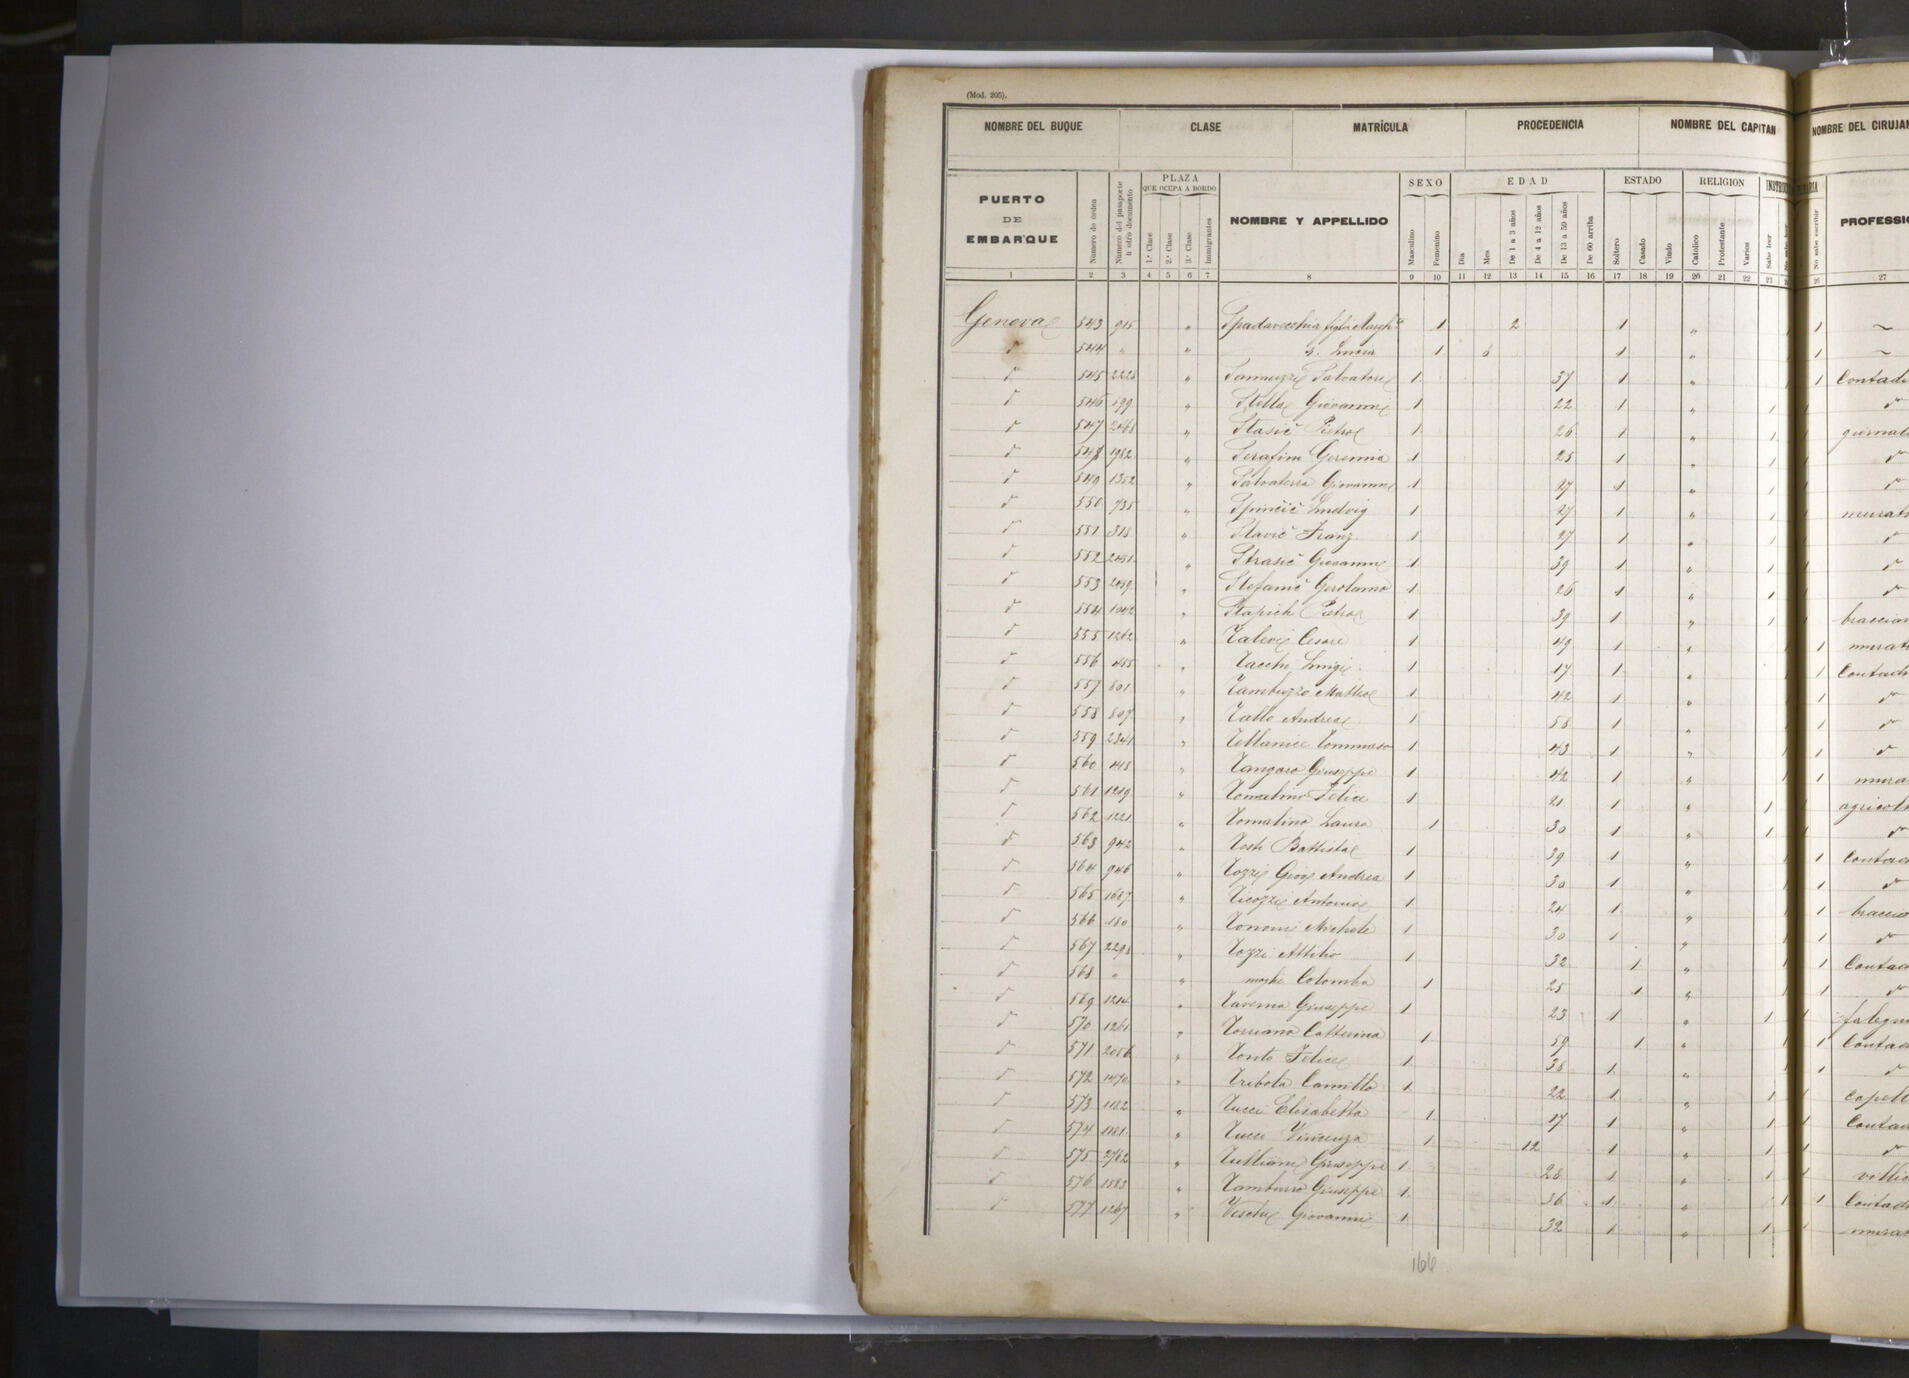 (Mod. 205).
NOMBRE DEL BUQUE CLASE MATRÍCULA PROCEDENCIA NOMBRE DEL CAPITAN NOMBRE DEL CIRUJAN
PUERTO DE EMBARQUE Número de orden Número del pasaporte ú otro documento PLAZA QUE OCUPA A BORDO 1.ª Clase 2.ª Clase 3.ª Clase Inmigrantes NOMBRE Y APPELLIDO SEXO Masculino Femenino EDAD Dia Mes De 1 a 3 años De 4 a 12 años De 13 a 59 años De 60 arriba ESTADO Soltero Casado Viudo RELIGION Católico Protestante Varios Sabe leer No sabe escribir PROFESSI
1 2 3 4 5 6 7 8 9 10 11 12 13 14 15 16 17 18 19 20 21 22 23 26 27
Genova 543 915 " Spadavecchia figlia Margh.ta 1 2 1 " 1 ~
d 544 " " s. Lucia 1 1 " 1 ~
d 545 2228 " Salvatore 1 37 1 " 1 Contadi
d 546 599 " Stella Giovanni 1 22 1 " 1 1 d
d 547 " Stasič Pietro 1 26 1 " 1 1 giornal
d 548 1982 " Serafini Geremia 1 25 1 " 1 1 d
d 549 1352 " Salvaterra Giovanni 1 27 1 " 1 1 d
d 550 735 " Spinčič Ludvig 1 27 1 " 1 1 murat
d 551 318 " Slavič Franz 1 27 1 " 1 1 d
d 552 " Strasič Giovanni 1 39 1 " 1 1 d
d 553 " Stefanič Gerolamo 1 26 1 " 1 1 d
d 554 1042 " Stapich Pietro 1 39 1 " 1 1 braccian
d 555 1262 " Talevi Cesare 1 49 1 " 1 murat
d 556 455 " Tacchi Luigi 1 17 1 " 1 Contadi
d 557 801 " Tambuzzo Matteo 1 42 1 " 1 d
d 558 807 " Tallo Andrea 1 58 1 " 1 d
d 559 2341 " Tommaso 1 43 1 " 1 d
d 560 " Tangaro Giuseppe 1 42 1 " 1 mura
d 561 1219 " Tomalino Felice 1 21 1 " 1 agricol
d 562 1221 " Tomalino Laura 1 30 1 " 1 d
d 563 942 " Testi Battista 1 39 1 " 1 Contad
d 564 946 " Tozzi Giov Andrea 1 30 1 " 1 d
d 565 1687 " Ticozzi Antonio 1 24 1 " 1 braccia
d 566 180 " Tononi Michele 1 30 1 " 1 d
d 567 2298 " Tozzi Attilio 1 32 1 " 1 Contad
d 568 " " moglie Colomba 1 25 1 " 1 d
d 569 1214 " Taverna Giuseppe 1 23 1 " 1 falegn
d 570 1261 " Torriano Catterina 1 59 1 " 1 Contad
d 571 2056 " Tonti Felice 1 38 1 " 1 d
d 572 1470 " Tribola Camillo 1 22 1 " 1 capell
d 573 1182 " Tucci Elisabetta 1 17 1 " 1 Contad
d 574 1181 " Tucci Vincenza 1 12 1 " 1 d
d 575 2762 " Tulliani Giuseppe 1 28 1 " 1 villic
d 576 1583 " Tamburro Giuseppe 1 36 1 " 1 Contad
d 577 1267 " Veschi Giovanni 1 32 1 " 1 murat
166